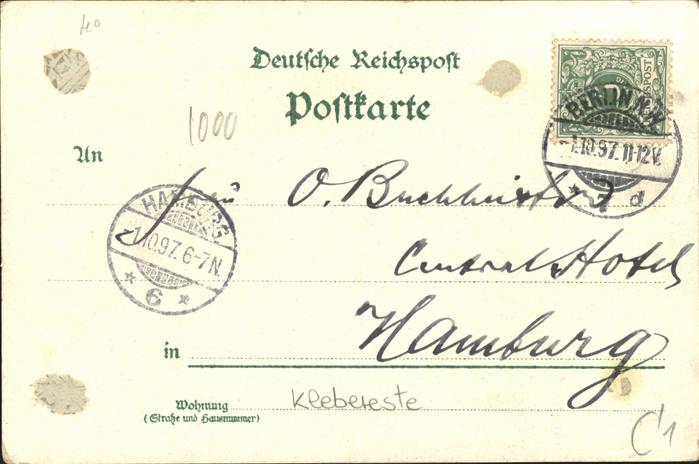 40
Deutsche Reichspost
Postkarte
1000
An
REICHSPOST
BERLIN N.W.
1.10.97. 11-12V.
* 7 d
O.
HAMBURG
1.10.97. 6-7N.
* 6 *
Central Hotel
in Hamburg
Wohnung
(Straße und Hausnummer)
Klebereste
C1